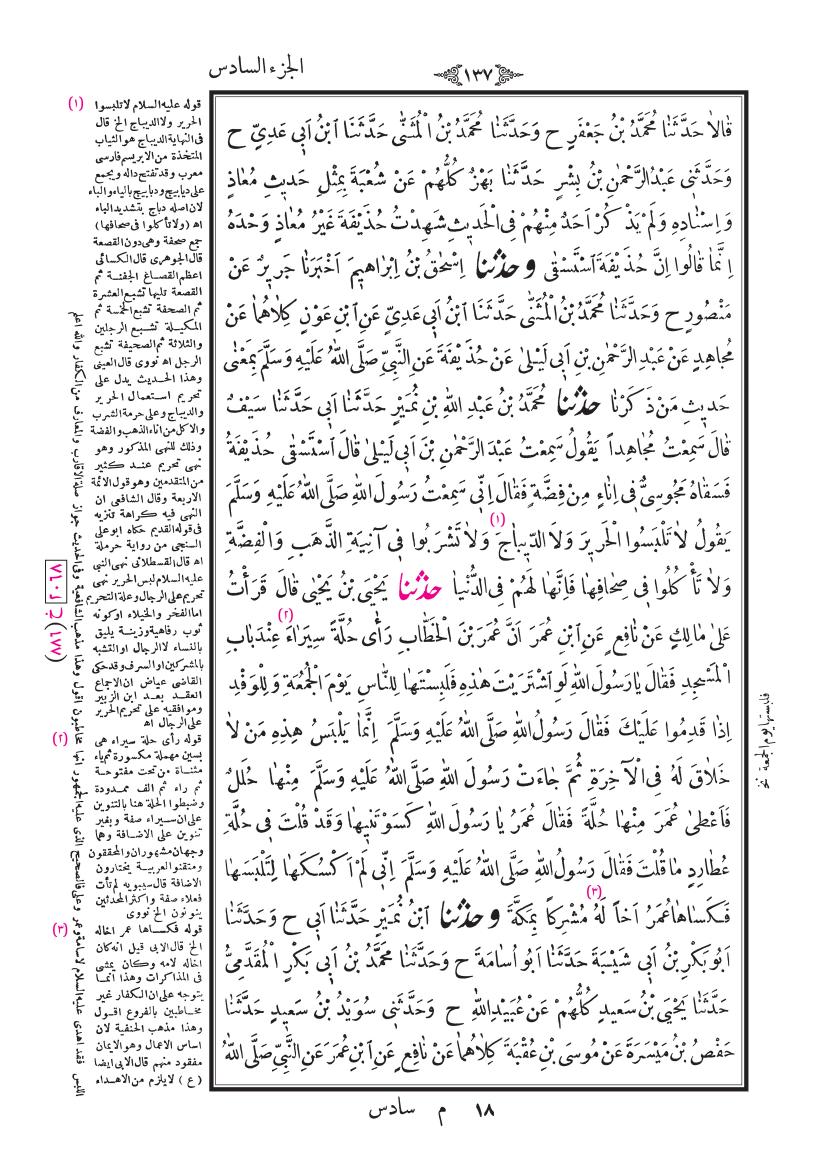 ١٣٧
الجزء السادس
قَالَا حَدَّثَنَا مُحَمَّدُ بْنُ جَعْفَرٍ ح وَحَدَّثَنَا مُحَمَّدُ بْنُ الْمُثَنَّى حَدَّثَنَا ابْنُ اَبِى عَدِىٍّ ح
وَحَدَّثَنِى عَبْدُ الرَّحْمٰنِ بْنُ بِشْرٍ حَدَّثَنَا بَهْزٌ كُلُّهُمْ عَنْ شُعْبَةَ بِمِثْلِ حَدِيثِ مُعَاذٍ
وَاِسْنَادِهِ وَلَمْ يَذْكُرْ اَحَدٌ مِنْهُمْ فِى الْحَدِيثِ شَهِدْتُ حُذَيْفَةَ غَيْرُ مُعَاذٍ وَحْدَهُ
اِنَّمَا قَالُوا اِنَّ حُذَيْفَةَ اسْتَسْقٰى وحدثنا اِسْحٰقُ بْنُ اِبْرَاهِيمَ اَخْبَرَنَا جَرِيرٌ عَنْ
مَنْصُورٍ ح وَحَدَّثَنَا مُحَمَّدُ بْنُ الْمُثَنَّى حَدَّثَنَا ابْنُ اَبِى عَدِىٍّ عَنِ ابْنِ عَوْنٍ كِلَاهُمَا عَنْ
مُجَاهِدٍ عَنْ عَبْدِ الرَّحْمٰنِ بْنِ اَبِى لَيْلىٰ عَنْ حُذَيْفَةَ عَنِ النَّبِىِّ صَلَّى اللهُ عَلَيْهِ وَسَلَّمَ بِمَعْنٰى
حَدِيثِ مَنْ ذَكَرْنَا حدثنا مُحَمَّدُ بْنُ عَبْدِ اللهِ بْنِ نُمَيْرٍ حَدَّثَنَا اَبِى حَدَّثَنَا سَيْفٌ
قَالَ سَمِعْتُ مُجَاهِداً يَقُولُ سَمِعْتُ عَبْدَ الرَّحْمٰنِ بْنَ اَبِى لَيْلىٰ قَالَ اسْتَسْقٰى حُذَيْفَةُ
فَسَقَاهُ مَجُوسِىٌّ فِى اِنَاءٍ مِنْ فِضَّةٍ فَقَالَ اِنِّى سَمِعْتُ رَسُولَ اللهِ صَلَّى اللهُ عَلَيْهِ وَسَلَّمَ
يَقُولُ لَا تَلْبَسُوا الْحَرِيرَ وَلَا الدِّيبَاجَ (١) وَلَا تَشْرَبُوا فِى آنِيَةِ الذَّهَبِ وَالْفِضَّةِ
وَلَا تَأْكُلُوا فِى صِحَافِهَا فَاِنَّهَا لَهُمْ فِى الدُّنْيَا حدثنا يَحْيَى بْنُ يَحْيٰى قَالَ قَرَأْتُ
عَلىٰ مَالِكٍ عَنْ نَافِعٍ عَنِ ابْنِ عُمَرَ اَنَّ عُمَرَ بْنَ الْخَطَّابِ رَأٰى حُلَّةً (٢) سِيَرَاءَ عِنْدَ بَابِ
الْمَسْجِدِ فَقَالَ يَا رَسُولَ اللهِ لَوِ اشْتَرَيْتَ هٰذِهِ فَلَبِسْتَهَا لِلنَّاسِ يَوْمَ الْجُمُعَةِ وَلِلْوَفْدِ
اِذَا قَدِمُوا عَلَيْكَ فَقَالَ رَسُولُ اللهِ صَلَّى اللهُ عَلَيْهِ وَسَلَّمَ اِنَّمَا يَلْبَسُ هٰذِهِ مَنْ لَا
خَلَاقَ لَهُ فِى الْآخِرَةِ ثُمَّ جَاءَتْ رَسُولَ اللهِ صَلَّى اللهُ عَلَيْهِ وَسَلَّمَ مِنْهَا حُلَلٌ
فَاَعْطٰى عُمَرَ مِنْهَا حُلَّةً فَقَالَ عُمَرُ يَا رَسُولَ اللهِ كَسَوْتَنِيهَا وَقَدْ قُلْتَ فِى حُلَّةِ
عُطَارِدٍ مَا قُلْتَ فَقَالَ رَسُولُ اللهِ صَلَّى اللهُ عَلَيْهِ وَسَلَّمَ اِنِّى لَمْ اَكْسُكَهَا لِتَلْبَسَهَا
فَكَسَاهَا عُمَرُ اَخاً لَهُ (٣) مُشْرِكاً بِمَكَّةَ وحدثنا ابْنُ نُمَيْرٍ حَدَّثَنَا اَبِى ح وَحَدَّثَنَا
اَبُو بَكْرِ بْنُ اَبِى شَيْبَةَ حَدَّثَنَا اَبُو اُسَامَةَ ح وَحَدَّثَنَا مُحَمَّدُ بْنُ اَبِى بَكْرٍ الْمُقَدَّمِىُّ
حَدَّثَنَا يَحْيَى بْنُ سَعِيدٍ كُلُّهُمْ عَنْ عُبَيْدِ اللهِ ح وَحَدَّثَنِى سُوَيْدُ بْنُ سَعِيدٍ حَدَّثَنَا
حَفْصُ بْنُ مَيْسَرَةَ عَنْ مُوسَى بْنِ عُقْبَةَ كِلَاهُمَا عَنْ نَافِعٍ عَنِ ابْنِ عُمَرَ عَنِ النَّبِىِّ صَلَّى اللهُ
فلبستها يوم الجمعة نخ
(١) قوله عليه السلام لا تلبسوا
الحرير ولا الديباج الخ قال
فى النهاية الديباج هو الثياب
المتخذة من الابريسم فارسى
معرب وقد تفتح داله ويجمع
على ديابيج ودبابيج بالياء والباء
لان اصله دباج بتشديد الباء
اه (ولا تأكلوا فى صحافها)
جمع صحفة وهى دون القصعة
قال الجوهرى قال الكسائى
اعظم القصاع الجفنة ثم
القصعة تليها تشبع العشرة
ثم الصحفة تشبع الخمسة ثم
المكيلة تشبع الرجلين
والثلاثة ثم الصحيفة تشبع
الرجل اه نووى قال العينى
وهذا الحديث يدل على
تحريم استعمال الحرير
والديباج وعلى حرمة الشرب
والاكل من اناء الذهب والفضة
وذلك للنهى المذكور وهو
نهى تحريم عند كثير
من المتقدمين وهو قول الائمة
الاربعة وقال الشافعى ان
النهى فيه كراهة تنزيه
فى قوله القديم حكاه ابو على
السنجى من رواية حرملة
اه قال القسطلانى نهى النبى
عليه السلام لبس الحرير نهى
تحريم على الرجال وعلة التحريم
اما الفخر والخيلاء او كونه
ثوب رفاهية وزينة يليق
بالنساء لا الرجال او التشبه
بالمشركين او السرف وقد حكى
القاضى عياض ان الاجماع
انعقد بعد ابن الزبير
وموافقيه على تحريم الحرير
على الرجال اه
(٢) قوله رأى حلة سيراء هى
بسين مهملة مكسورة ثم ياء
مثناة من تحت مفتوحة
ثم راء ثم الف ممدودة
وضبطوا الحلة هنا بالتنوين
على ان سيراء صفة وبغير
تنوين على الاضافة وهما
وجهان مشهوران والمحققون
ومتقنو العربية يختارون
الاضافة قال سيبويه لم تأت
فعلاء صفة واكثر المحدثين
ينونون الخ نووى
(٣) قوله فكساها عمر اخاله
الخ قال الابى قيل انه كان
اخاله لامه وكان يمشى
فى المذاكرات وهذا انما
يتوجه على ان الكفار غير
مخاطبين بالفروع اقول
وهذا مذهب الحنفية لان
اساس الاعمال وهو الايمان
مفقود منهم قال الابى ايضا
(ع) لا يلزم من الاهداء
اللبس فقد اهدى عليه السلام لاسامة وعمر وعلى فالصحيح الذى عليه الجمهور انها مخاطبون اقول وهذا مذهب الشافعية وفى الحديث جواز صلة الاقارب والمعارف من الكفار والله اعلم
(١٧٧) ج ٧٤٠٢
١٨ م سادس